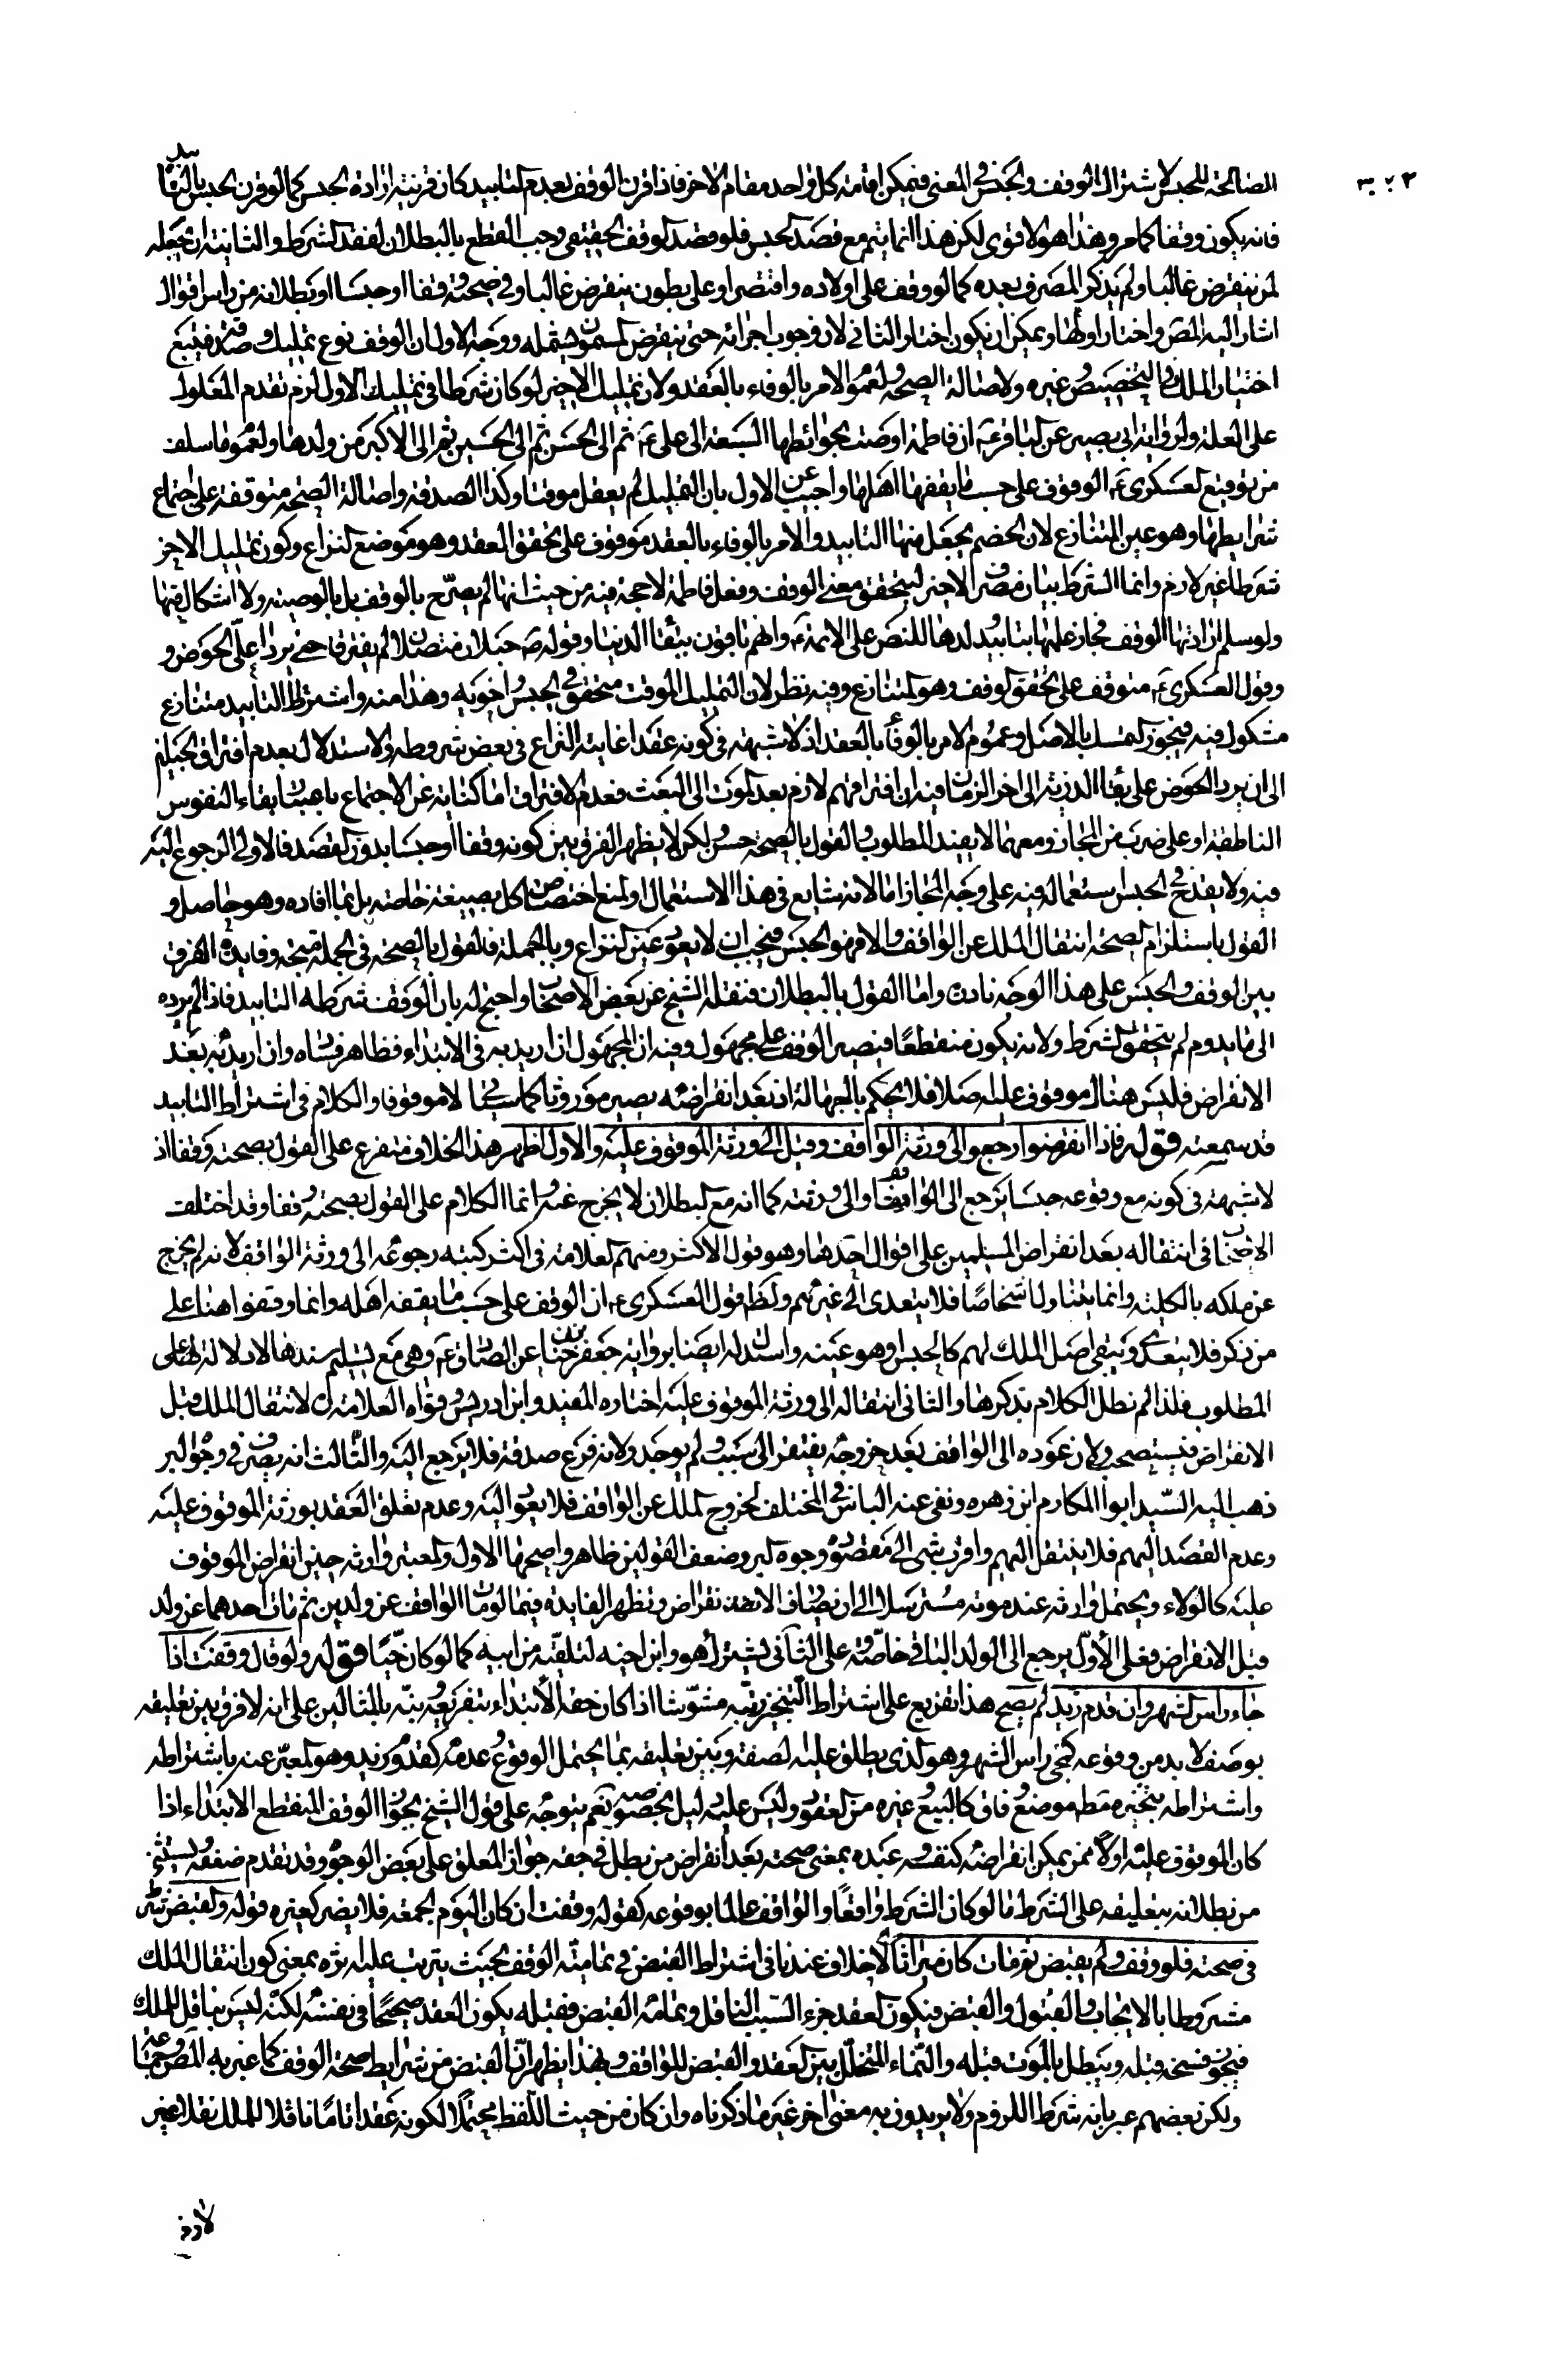 ٣٠٢٣
الصالحة للحبس لاشتراك الوقف والحبس فى المعنى فيمكن اقامة كل واحد مقام الاخر فاذا قرن الوقف بعدم التابيد كان قرينة ارادة الحبس كما لو قرن الحبس بالتابيد
فانه يكون وقفا كما مر وهذا هو الاقوى لكن هذا انما يتم مع قصد الحبس فلو قصد الوقف الحقيقى وجب القطع بالبطلان لفقد الشرط والثانية ان يجعله
لمن ينقرض غالبا ولم يذكر المصرف بعده كما لو وقف على اولاده واقتصر او على بطون ينقرض غالبا وفى صحته وقفا او حبسا او بطلانه من راس اقوال
اشار اليه المص واختار اولها ويمكن ان يكون اختار الثانى لان وجوب اجرائه حتى ينقرض المسمون يشمله ووجه الاول ان الوقف نوع تمليك وصدقة فيتبع
اختيار المالك فى التخصيص وغيره ولاصالة الصحة ولعموم الامر بالوفاء بالعقد ولان تمليك الاخير لو كان شرطا فى تمليك الاول لزم تقدم المعلول
على العلة ولرواية ابى بصير عن الباقر ع ان فاطمة اوصت بحوائطها السبعة الى على ع ثم الى الحسن ثم الى الحسين ثم الى الاكبر من ولدها ولعموم ما سلف
من توقيع العسكرى ع الوقوف على حسب ما يقفها اهلها واجيب عن الاول بان التمليك لم يعقل موقتا وكذا الصدقة واصالة الصحة متوقفة على اجتماع
شرايطها وهو عين المتنازع لان الخصم يجعل منها التابيد والامر بالوفاء بالعقد موقوف على تحقق العقد وهو موضع النزاع وكون تمليك الاخير
شرطا غير لازم وانما الشرط بيان مصرف الاخير ليتحقق معنى الوقف وفعل فاطمة لا حجة فيه من حيث انها لم يصرح بالوقف بل بالوصية ولا اشكال فيها
ولو سلم ارادتها الوقف فجاز علمها بتابيد ولدها للنص على الائمة ع وانهم باقون ببقاء الدنيا وقوله ص حبلان متصلان لم يفترقا حتى يردا على الحوض و
وقول العسكرى ع متوقف على تحقق الوقف وهو المتنازع وفيه نظر لان التمليك الموقت متحقق فى الحبس واخويه وهذا منه واشتراط التابيد متنازع
مشكوك فيه فيجوز التمسك بالاصل وعموم الامر بالوفاء بالعقد اذ لا شبهة فى كونه عقدا غاية النزاع فى بعض شروطه والاستدلال بعدم افتراق الحبلين
الى ان يردا الحوض على بقاء الذرية الى اخر الزمان فيه ان افتراقهم لازم بعد الموت الى البعث فعدم الافتراق اما كناية عن الاجتماع باعتبار بقاء النفوس
الناطقة او على ضرب من المجاز ومعهما لا يفيد المطلوب والقول بالصحة حسن لكن لا يظهر الفرق بين كونه وقفا او حبسا بدون القصد فالاولى الرجوع اليه
فيه ولا يقدح فى الحبس استعماله فيه على وجه المجاز اما لانه شايع فى هذا الاستعمال او لمنع اختصاص كل بصيغة خاصة بل بما افاده وهو حاصل و
القول باستلزام الصحة انتقال الملك عن الواقف والا فهو الحبس فيجب ان لا يعود عين النزاع وبالجملة فالقول بالصحة فى الجملة متجه وفايدة الفرق
بين الوقف والحبس على هذا الوجه نادرة واما القول بالبطلان فنقله الشيخ عن بعض الاصحاب واحتج له بان الوقف شرطه التابيد فاذا لم يرده
الى ما يدوم لم يتحقق الشرط ولانه يكون منقطعا فيصير الوقف على مجهول وفيه ان المجهول ان اريد به فى الابتداء فظاهر فساده وان اريد به بعد
الانقراض فليس هناك موقوف عليه اصلا فلا يحكم بالجهالة اذ بعد انقراضه يصير موروثا كما سياتى لا موقوفا والكلام فى اشتراط التابيد
قد سمعته قوله فاذا انقرضوا رجع الى ورثة الواقف وقيل الى ورثة الموقوف عليه والاول اظهر هذا الخلاف متفرع على القول بصحته وقفا اذ
لا شبهة فى كونه مع وقوعه حبسا يرجع الى الواقف او الى ورثته كما انه مع البطلان لا يخرج عنه وانما الكلام على القول بصحته وقفا وقد اختلف
الاصحاب فى انتقاله بعد انقراض المسلمين على اقوال احدها وهو قول الاكثر ومنهم العلامة فى اكثر كتبه رجوعه الى ورثة الواقف لانه لم يخرج
عن ملكه بالكلية وانما يتناول اشخاصا فلا يتعدى الى غيرهم ولظ قول العسكرى ع ان الوقف على حسب ما يقفه اهله وانما وقفوا هنا على
من ذكر فلا يتعدى ويبقى اصل الملك لهم كالحبس او هو عينه واستدل له ايضا برواية جعفر بن حنان عن الصادق ع وهى مع تسليم سندها لا دلالة لها على
المطلوب فلذا لم نطل الكلام بذكرها والثانى انتقاله الى ورثة الموقوف عليه اختاره المفيد وابن ادريس وقواه العلامة لانتقال الملك قبل
الانقراض فيستصحب ولان عوده الى الواقف بعد خروجه يفتقر الى سبب ولم يوجد ولانه فرع صدقة فلا يرجع اليه والثالث انه يصرف فى وجوه البر
ذهب اليه السيد ابو المكارم ابن زهرة ونفى عنه الباس فى المختلف لخروج الملك عن الواقف فلا يعود اليه وعدم تعلق العقد بورثة الموقوف عليه
وعدم القصد اليهم فلا ينتقل اليهم واقرب شىء الى مقصوده وجوه البر وضعف القولين ظاهر واصحها الاول والمعتبر وارثه حين انقراض الموقوف
عليه كالولاء ويحتمل وارثه عند موته مسترسلا الى ان يصادف الانقراض وتظهر الفايدة فيما لو مات الواقف عن ولدين ثم مات احدهما عن ولد
قبل الانقراض فعلى الاول يرجع الى الولد الباقى خاصة وعلى الثانى يشترك هو وابن اخيه لتلقيه من ابيه كما لو كان حيا قوله ولو قال وقفت اذا
جاء راس الشهر وان قدم زيد لم يصح هذا تفريع على اشتراط التنجيز رتبه مشوشا اذ كان حقه الابتداء بتفريعه ونبه بالمثالين على انه لا فرق بين تعليقه
بوصف لا بد من وقوعه كمجىء راس الشهر وهو الذى يطلق عليه الصفة وبين تعليقه بما يحتمل الوقوع وعدمه كقدوم زيد وهو المعبر عنه بالشرط
واشتراطه تنجيزه مط موضع وفاق كالبيع وغيره من العقود وليس عليه دليل بخصوصه نعم يتوجه على قول الشيخ بجواز الوقف المنقطع الابتداء اذا
كان الموقوف عليه اولا ممن يمكن انقراضه كنفسه وعبده بمعنى صحته بعد انقراض من بطل فى حقه جواز المعلق على بعض الوجوه وقد تقدم ضعفه ويستثنى
من بطلانه بتعليقه على الشرط ما لو كان الشرط واقعا والواقف عالما بوقوعه كقوله وقفت ان كان اليوم الجمعة فلا يضر كغيره قوله والقبض شرط
فى صحته فلو وقف ولم يقبض ثم مات كان ميراثا لا خلاف عندنا فى اشتراط القبض فى تمامية الوقف بحيث يترتب عليه اثره بمعنى كون انتقال الملك
مشروطا بالايجاب والقبول والقبض فيكون العقد جزء السبب الناقل وتمامه القبض فقبله يكون العقد صحيحا فى نفسه لكنه ليس بناقل للملك
فيجوز فسخه قبله ويبطل بالموت قبله والنماء المتخلل بين العقد والقبض للواقف وبهذا يظهر ان القبض من شرايط صحة الوقف كما عبر به المص وجماعة
ولكن بعضهم عبر بانه شرط اللزوم ولا يريدون به معنى اخر غير ما ذكرناه وان كان من حيث اللفظ محتملا لكونه عقدا تاما ناقلا للملك نقلا غير
لازم